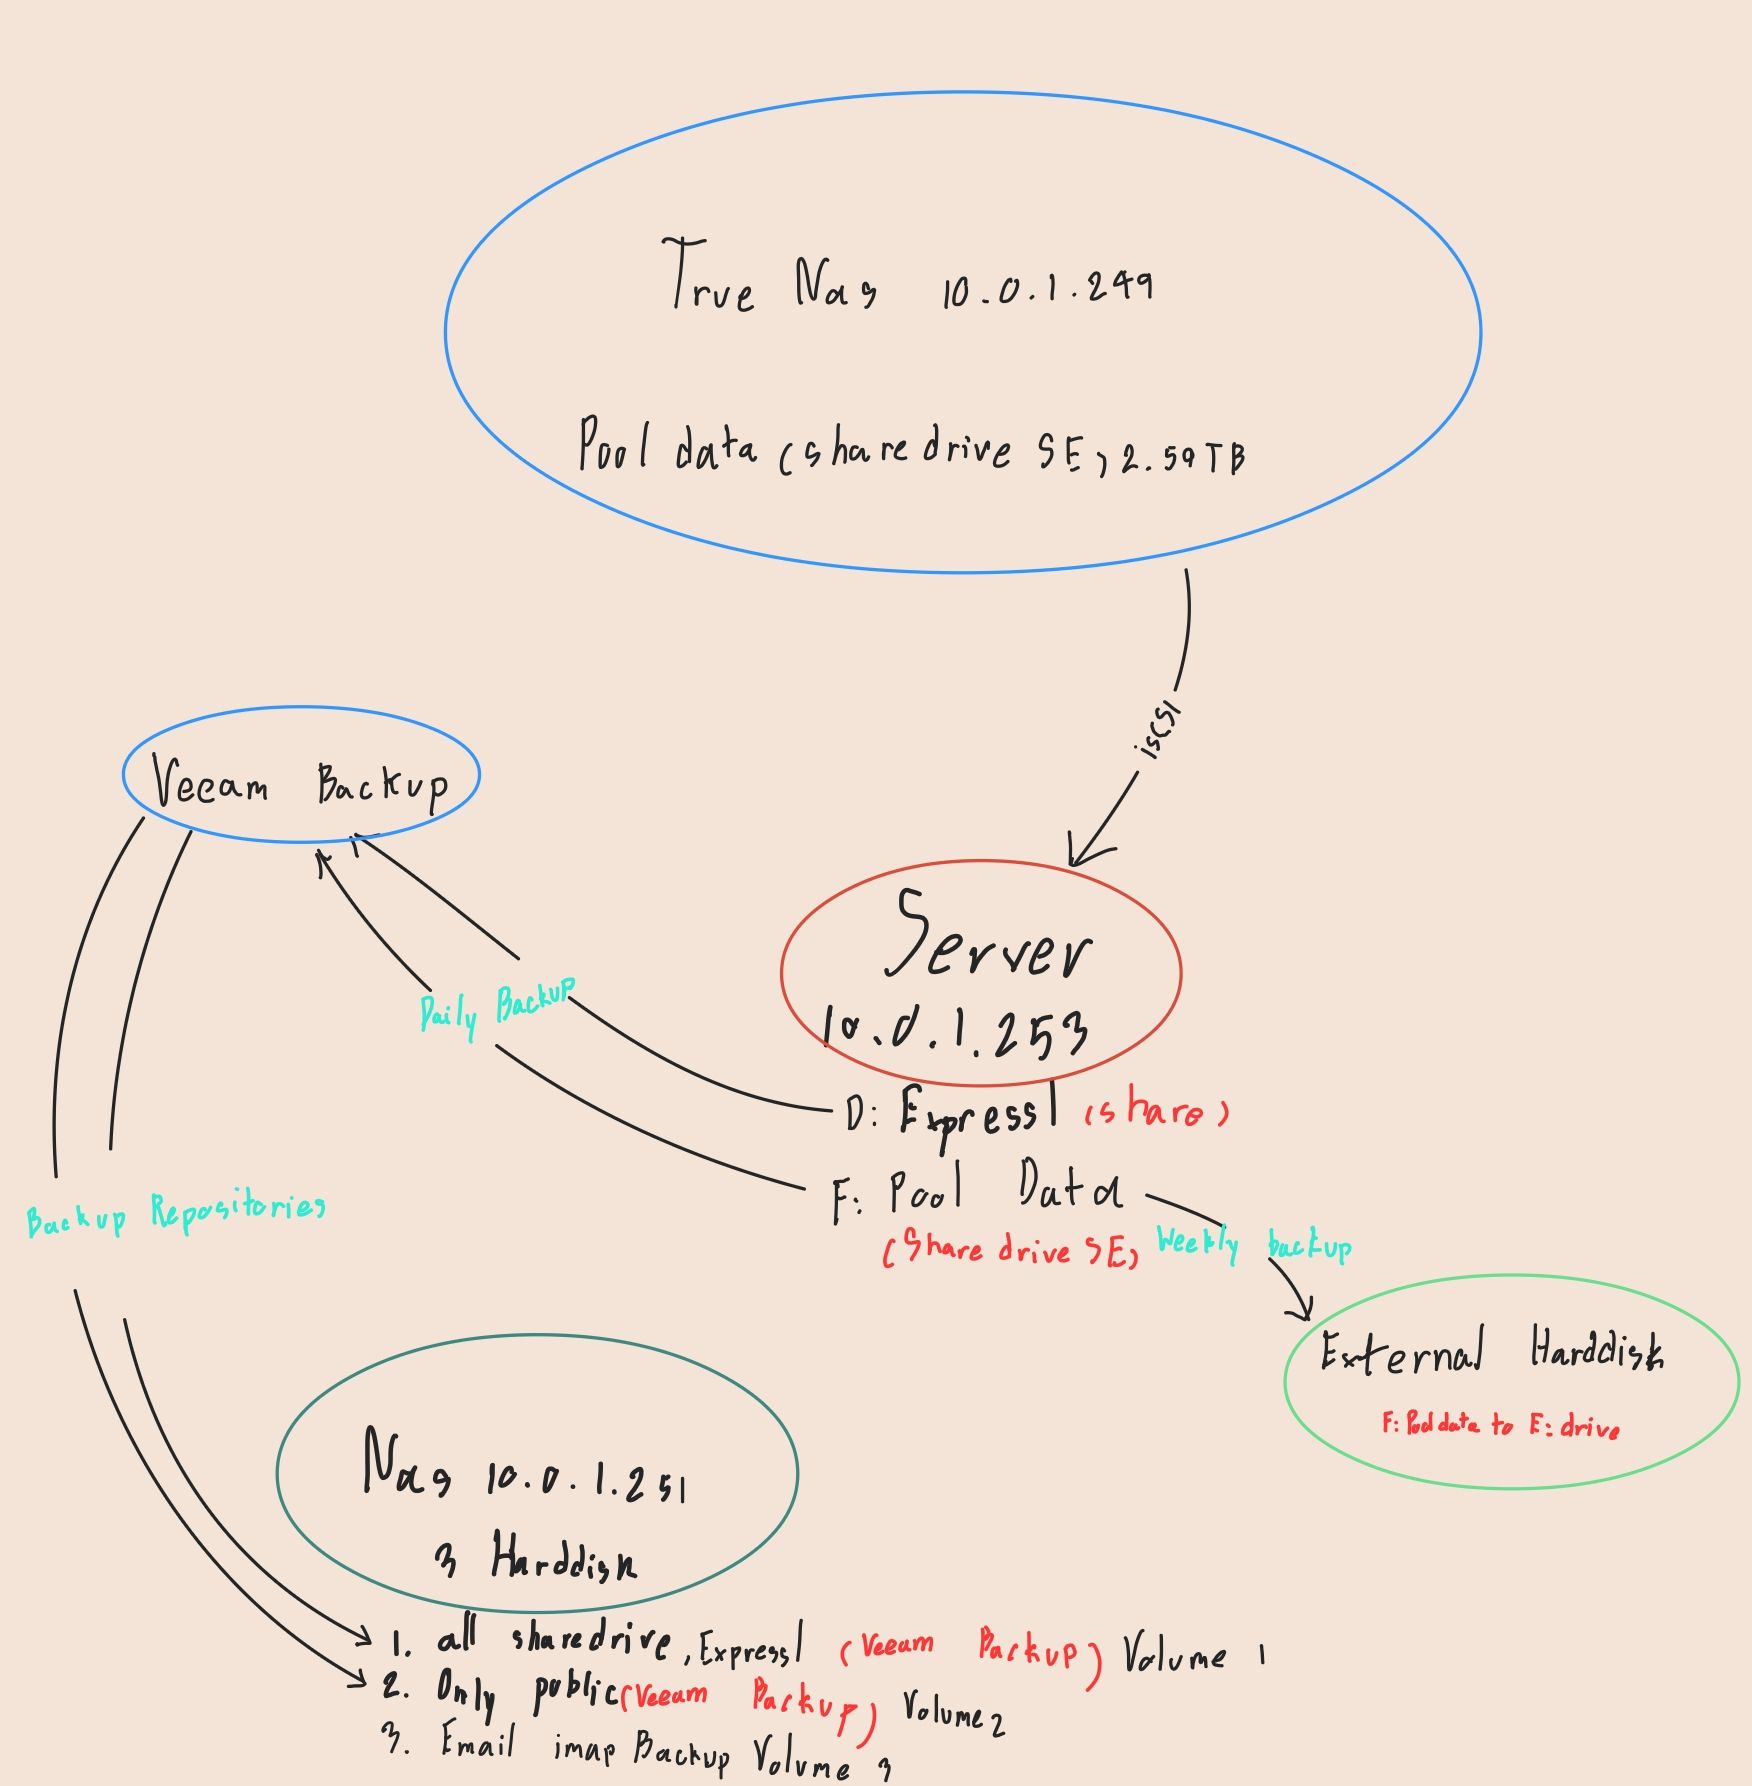 True Nas 10.0.1.249
Pool data (share drive SE) 2.59TB
iscsi
Veeam Backup
Server
10.0.1.253
Daily Backup
D: Expressl (share)
F: Pool Data
(Share drive SE)
Weekly backup
Backup Repositories
External Harddisk
F: Pool data to E: drive
Nas 10.0.1.251
3 Harddisk
1. all sharedrive, Expressl (Veeam Backup) Volume 1
2. Only public (Veeam Backup) Volume 2
3. Email imap Backup Volume 3